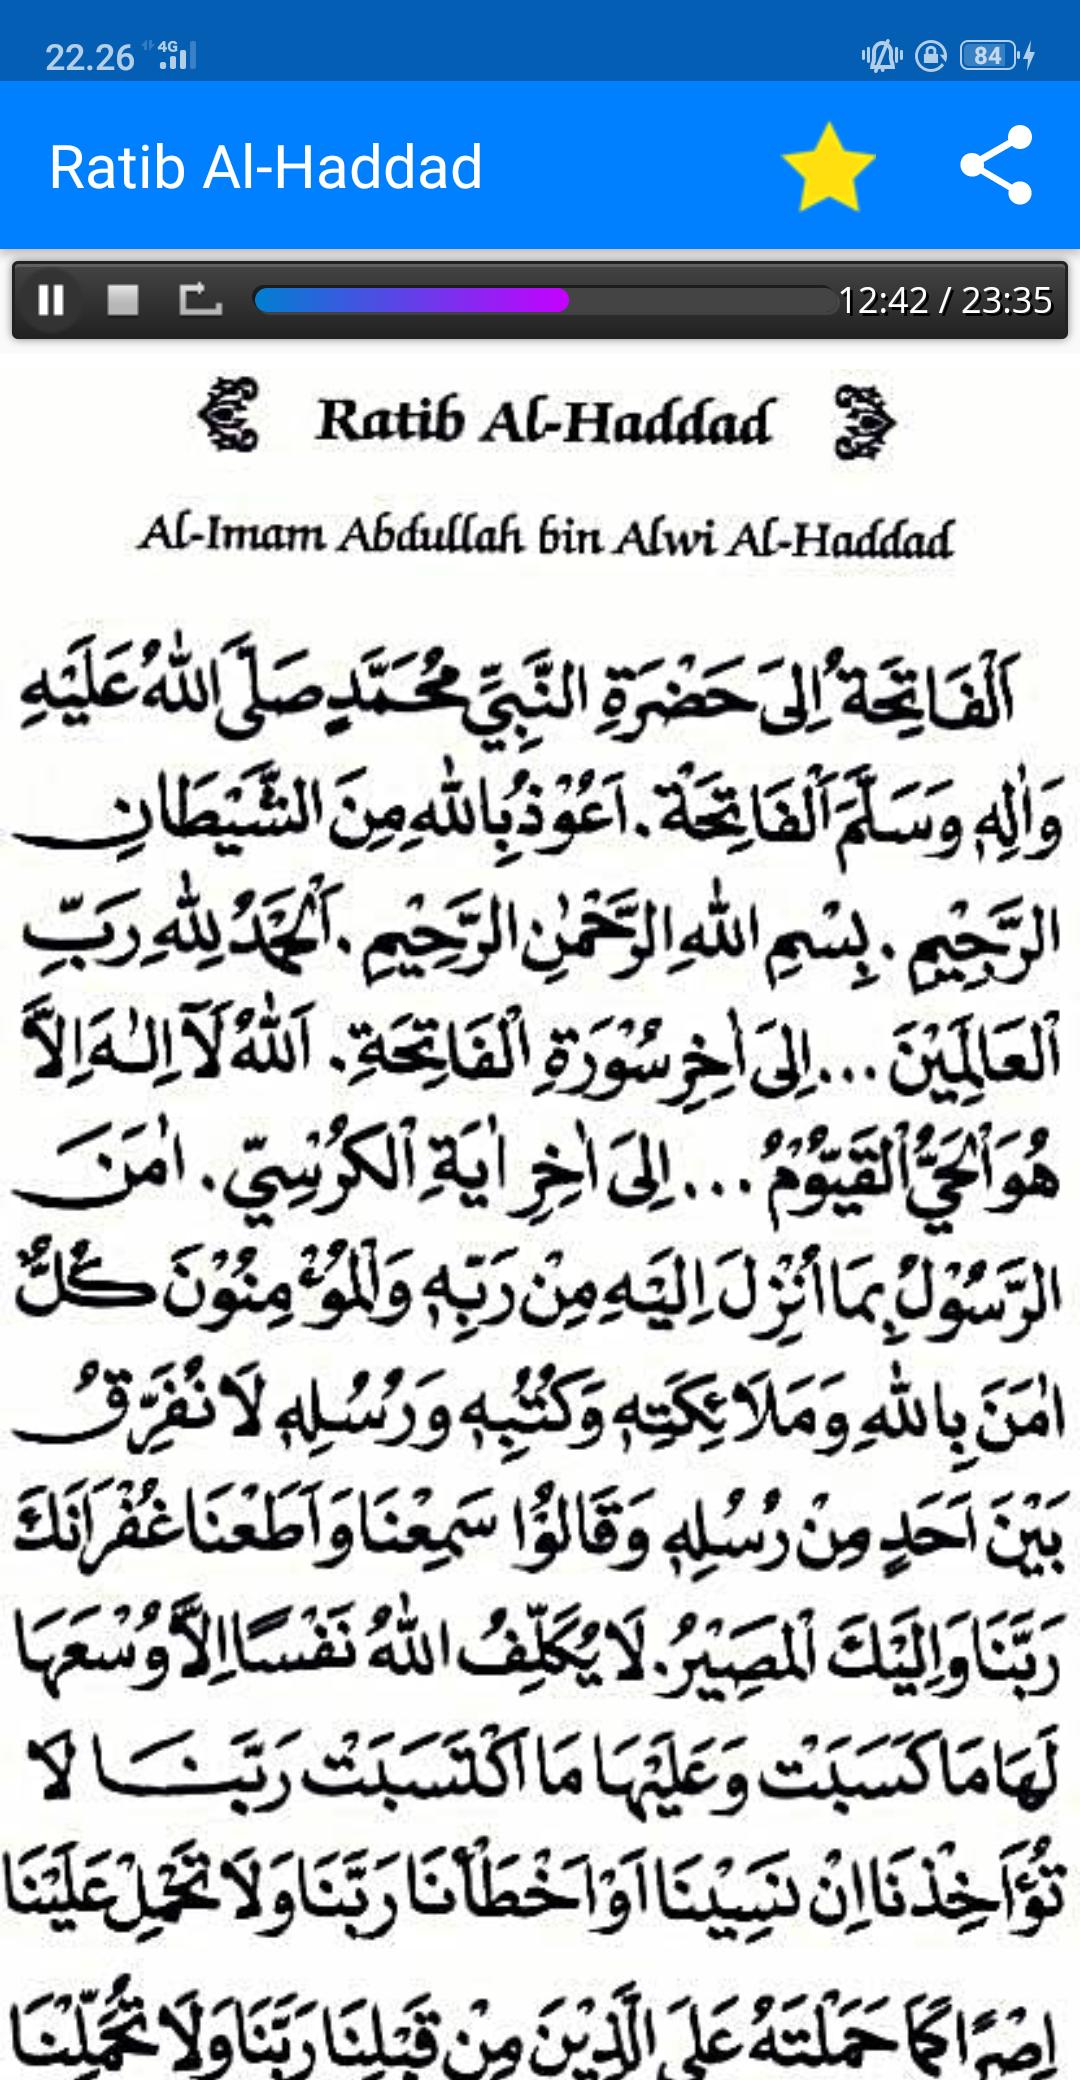 22.26 4G 84
Ratib Al-Haddad
12:42 / 23:35
Ratib Al-Haddad
Al-Imam Abdullah bin Alwi Al-Haddad
اَلْفَاتِحَةُ اِلَى حَضْرَةِ النَّبِيِّ مُحَمَّدٍ صَلَّى اللهُ عَلَيْهِ
وَاٰلِهٖ وَسَلَّمَ اَلْفَاتِحَةْ. اَعُوْذُ بِاللهِ مِنَ الشَّيْطَانِ
الرَّجِيْمِ. بِسْمِ اللهِ الرَّحْمٰنِ الرَّحِيْمِ. اَلْحَمْدُ لِلّٰهِ رَبِّ
الْعَالَمِيْنَ ... اِلَى اٰخِرِ سُوْرَةِ الْفَاتِحَةِ. اَللهُ لَآ اِلٰهَ اِلَّا
هُوَ الْحَيُّ الْقَيُّوْمُ ... اِلَى اٰخِرِ اٰيَةِ الْكُرْسِيّ. اٰمَنَ
الرَّسُوْلُ بِمَا اُنْزِلَ اِلَيْهِ مِنْ رَبِّهٖ وَالْمُؤْمِنُوْنَ كُلٌّ
اٰمَنَ بِاللهِ وَمَلَائِكَتِهٖ وَكُتُبِهٖ وَرُسُلِهٖ لَا نُفَرِّقُ
بَيْنَ اَحَدٍ مِنْ رُسُلِهٖ وَقَالُوْا سَمِعْنَا وَاَطَعْنَا غُفْرَانَكَ
رَبَّنَا وَاِلَيْكَ الْمَصِيْرُ. لَا يُكَلِّفُ اللهُ نَفْسًا اِلَّا وُسْعَهَا
لَهَا مَا كَسَبَتْ وَعَلَيْهَا مَا اكْتَسَبَتْ رَبَّنَا لَا
تُؤَاخِذْنَا اِنْ نَسِيْنَا اَوْ اَخْطَأْنَا رَبَّنَا وَلَا تَحْمِلْ عَلَيْنَا
اِصْرًا كَمَا حَمَلْتَهُ عَلَى الَّذِيْنَ مِنْ قَبْلِنَا رَبَّنَا وَلَا تُحَمِّلْنَا